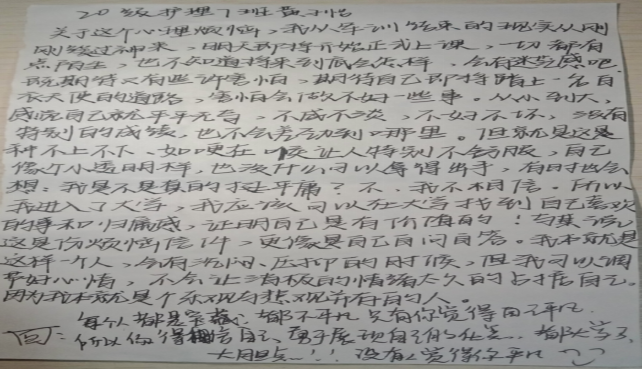 20级护理7班黄
关于这个心理烦恼，我从军训结束的现实从刚
刚缓过神来，明天即将开始正式上课，一切都有
点陌生，也不知道将来到底会怎样，会有迷茫感吧。
既期待又有些许害怕，期待自己即将踏上一名白
衣天使的道路，害怕会做不好一些事。从小到大，
感觉自己就平平无奇，不咸不淡，不好不坏，没有
特别的成绩，也不会差劲到哪里。但就是这
种不上不下、如哽在喉让人特别不舒服，自己
像个小透明样，也没什么可以拿得出手，有时也会
想：我是不是真的挺平庸？不、我不相信。所以
我进入了大学，我应该可以在大学找到自己喜欢
的事和归属感，证明自己是有价值的！与其说
这是份烦恼信件，更像是自己自问自答。我本就是
这样一个人，会有沉闷、压抑的时候，但我可以调
节好心情，不会让消极的情绪太久的占据自己。
因为我本就是个乐观与悲观并存的人。
每个人都是宝藏，都不平凡只有你觉得自己平凡
回：所以你得相信自己，勇于展现自己的，都大学了，
大胆点！！没有人觉得你平凡